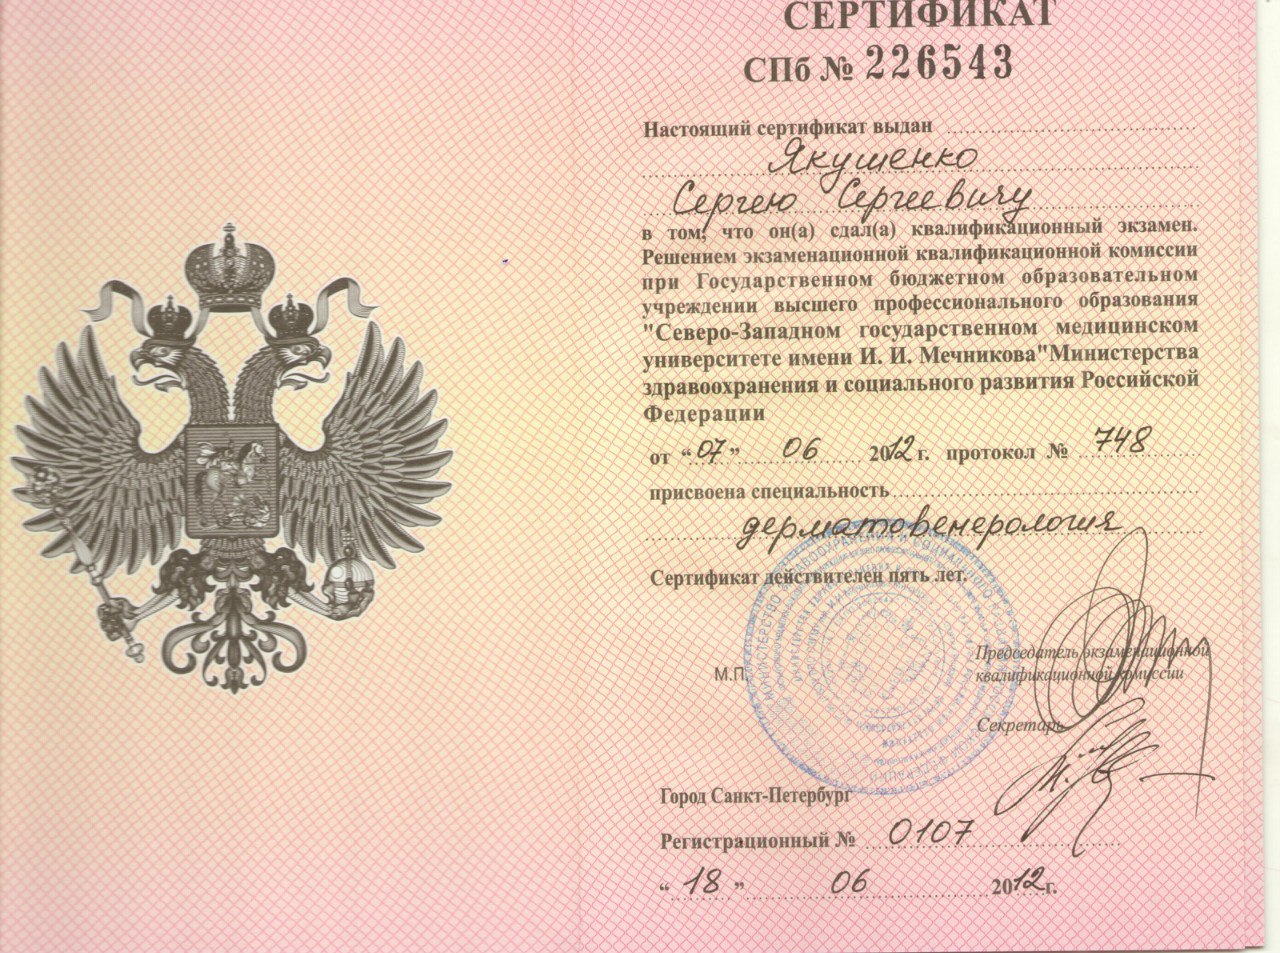 СЕРТИФИКАТ
СПб № 226543
Настоящий сертификат выдан
Якушенко
Сергею Сергеевичу
в том, что он(а) сдал(а) квалификационный экзамен.
Решением экзаменационной квалификационной комиссии
при Государственном бюджетном образовательном
учреждении высшего профессионального образования
"Северо-Западном государственном медицинском
университете имени И. И. Мечникова"Министерства
здравоохранения и социального развития Российской
Федерации
от “07” 06 2012 г. протокол № 748
присвоена специальность
дерматовенерология
Сертификат действителен пять лет.
Председатель экзаменационной
М.П.
квалификационной комиссии
Секретарь
Город Санкт-Петербург
Регистрационный № 0107
“18” 06 2012г.